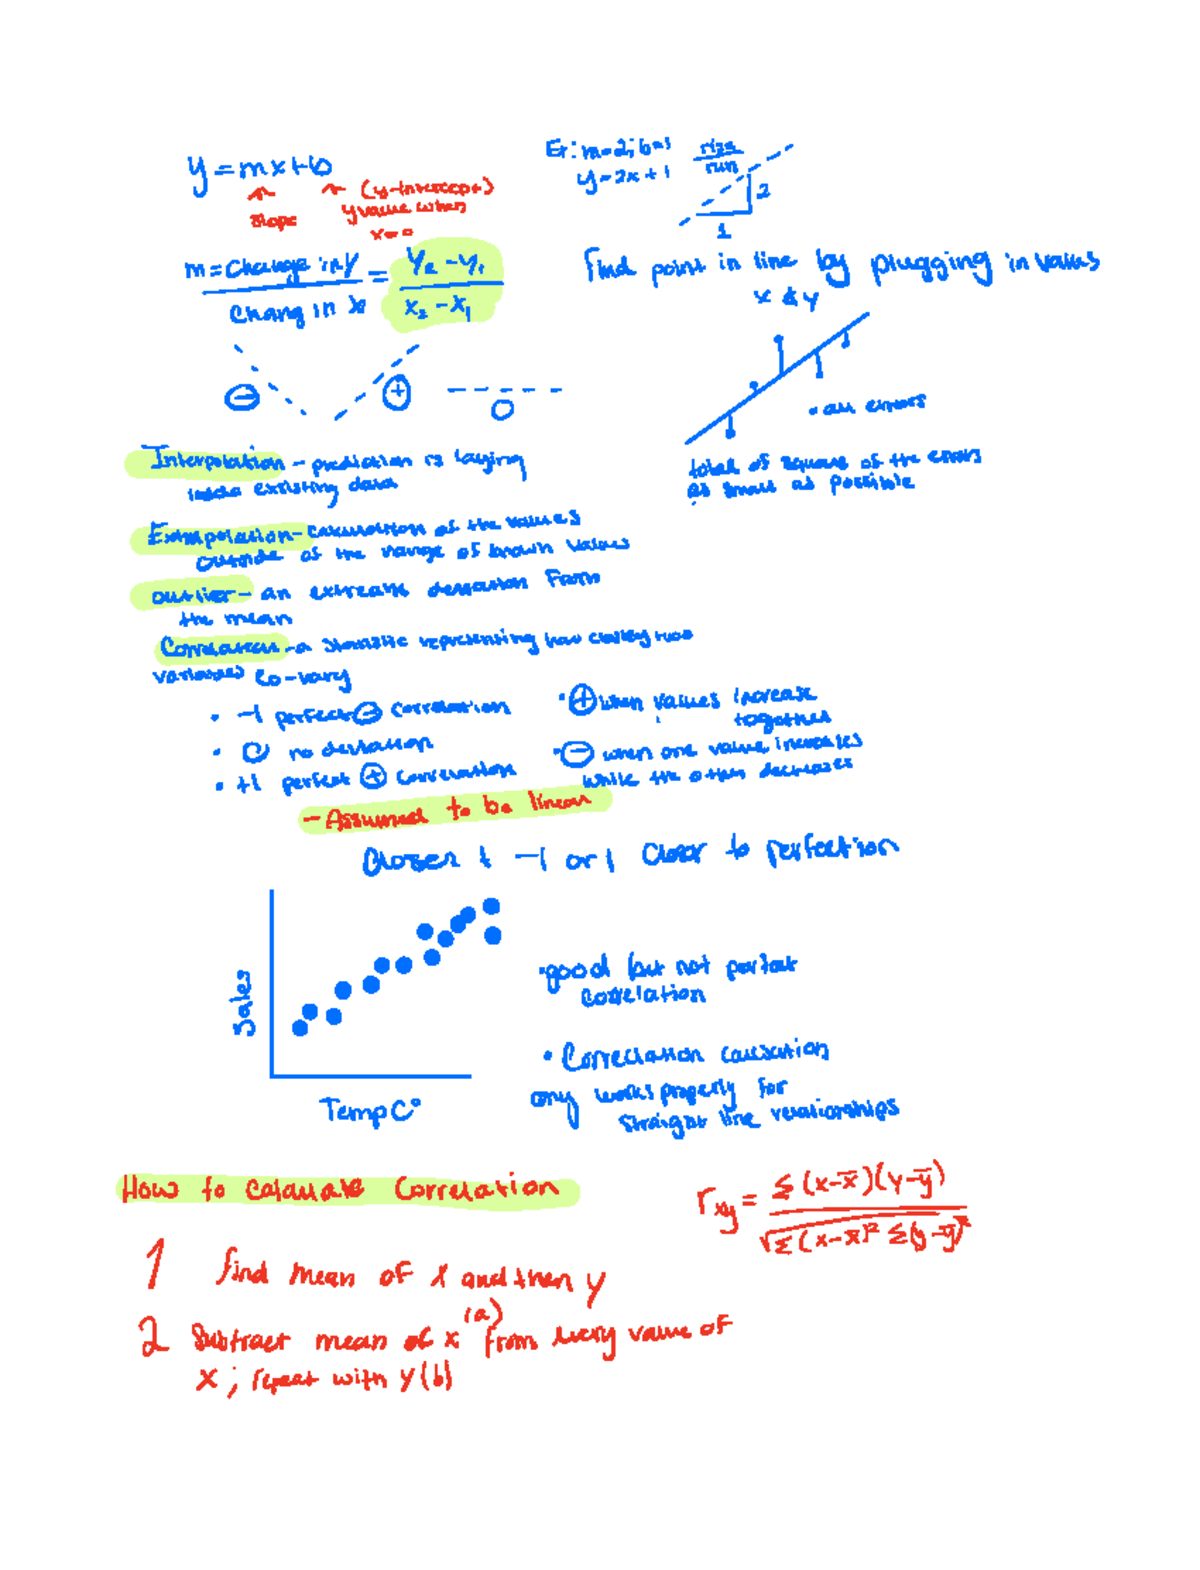 y = mx+b
(y-intercept)
slope
y value when
x=0
Ex: m=2; b=1
y=2x+1
rise
run
2
1
m = Change in Y = Y₂ - Y₁
Chang in X X₂ - X₁
Find point in line by plugging in values
x & y
−
+
0
• all errors
total of square of the errors
as small as possible
Interpolation - prediction is laying
inside existing data
Extrapolation - calculation of the values
outside of the range of known values
outlier - an extreme deviation from
the mean
Correlation - a statistic representing how closley two
variables co-vary
• -1 perfect ⊖ correlation
• 0 no deviation
• +1 perfect ⊕ correlation
• ⊕ when values increase
together
• ⊖ when one value increases
while the other decreases
- Assumed to be linear
Closer t -1 or 1 closer to perfection
Sales
Temp C°
• good but not perfect
correlation
• Correlation causation
only works properly for
straight line relationships
How to calculate Correlation
r_xy = Σ(x-x̄)(y-ȳ)
√Σ(x-x̄)² Σ(y-ȳ)²
1 find mean of x and then y
2 Subtract mean of x (a) from every value of
x ; repeat with y (b)